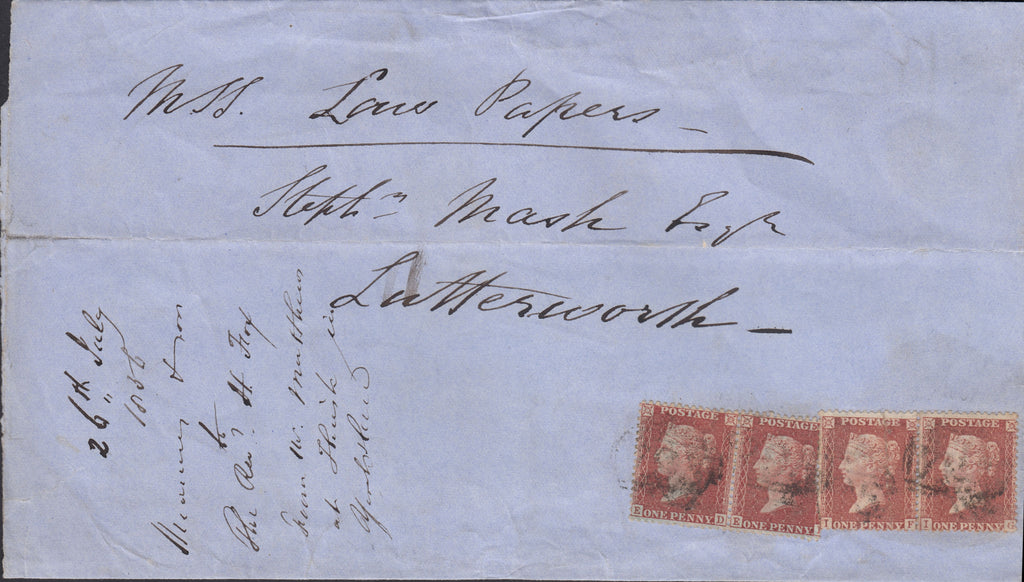 MSS. Law Papers -
Stephn Mash Esqr
Lutterworth -
26th July
1856
& non
to
The Revd. H. Fox
From W. Matthews
at Thirsk in
Yorkshire
POSTAGE
E ONE PENNY D
E ONE PENNY
POSTAGE
I ONE PENNY F
POSTAGE
I ONE PENNY G